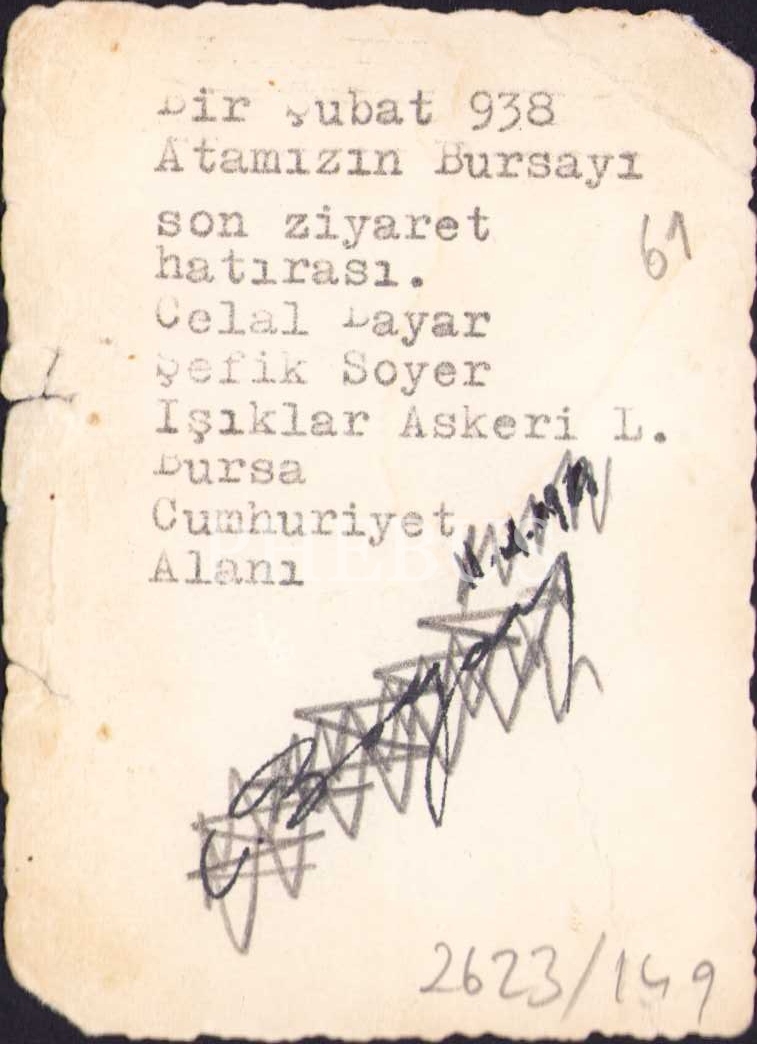 Bir Şubat 938
Atamızın Bursayı
son ziyaret
hatırası.
61
Celal Bayar
Şefik Soyer
Işıklar Askeri L.
Bursa
Cumhuriyet
Alanı
C. Bayar
2623/149